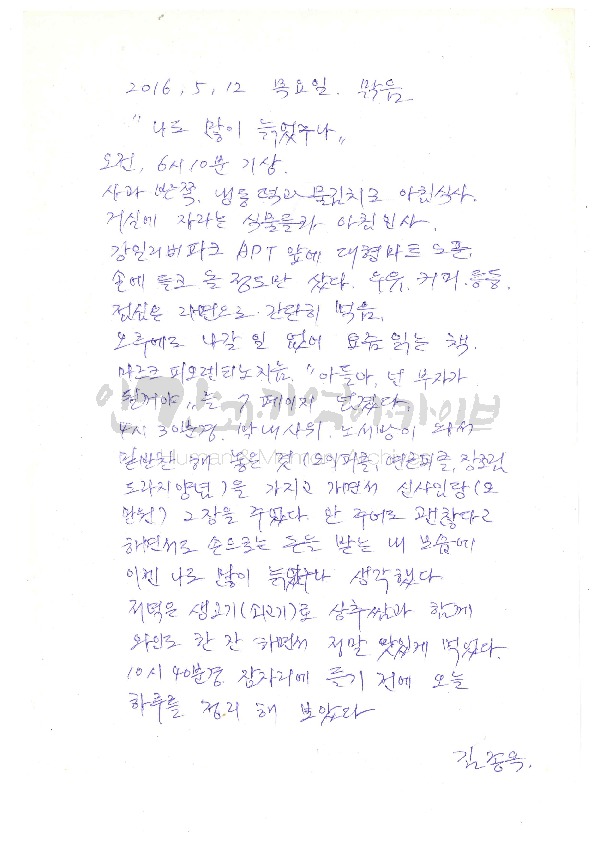 2016, 5, 12 목요일. 맑음
"나도 많이 늙었구나"
오전, 6시 10분 기상.
사과 반쪽, 냉동 떡과 물김치로 아침식사.
거실에 자라는 식물들과 아침인사.
강일리버파크 APT 앞에 대형마트 오픈,
손에 들고 올 정도만 샀다. 우유, 커피 등등.
점심은 라면으로 간단히 먹음,
오후에도 나갈 일 없어 요즘 읽는 책.
마크 피오렌티노 지음, "아들아, 넌 부자가
될거야"를 페이지 넘겼다.
4시 30분경, 막내사위, 노서방이 와서
밑반찬 해 놓은 것(오이피클, 연근피클,
도라지양념)을 가지고 가면서 신사임당(오
만원) 2장을 주었다. 안 주어도 괜찮다고
하면서도 손으로는 돈을 받는 내 모습에
이젠 나도 많이 늙었구나 생각했다
저녁은 생고기(쇠고기)로 상추쌈과 함께
와인도 한 잔 하면서 정말 맛있게 먹었다.
10시 40분경 잠자리에 들기 전에 오늘
하루를 정리 해 보았다
김종옥.